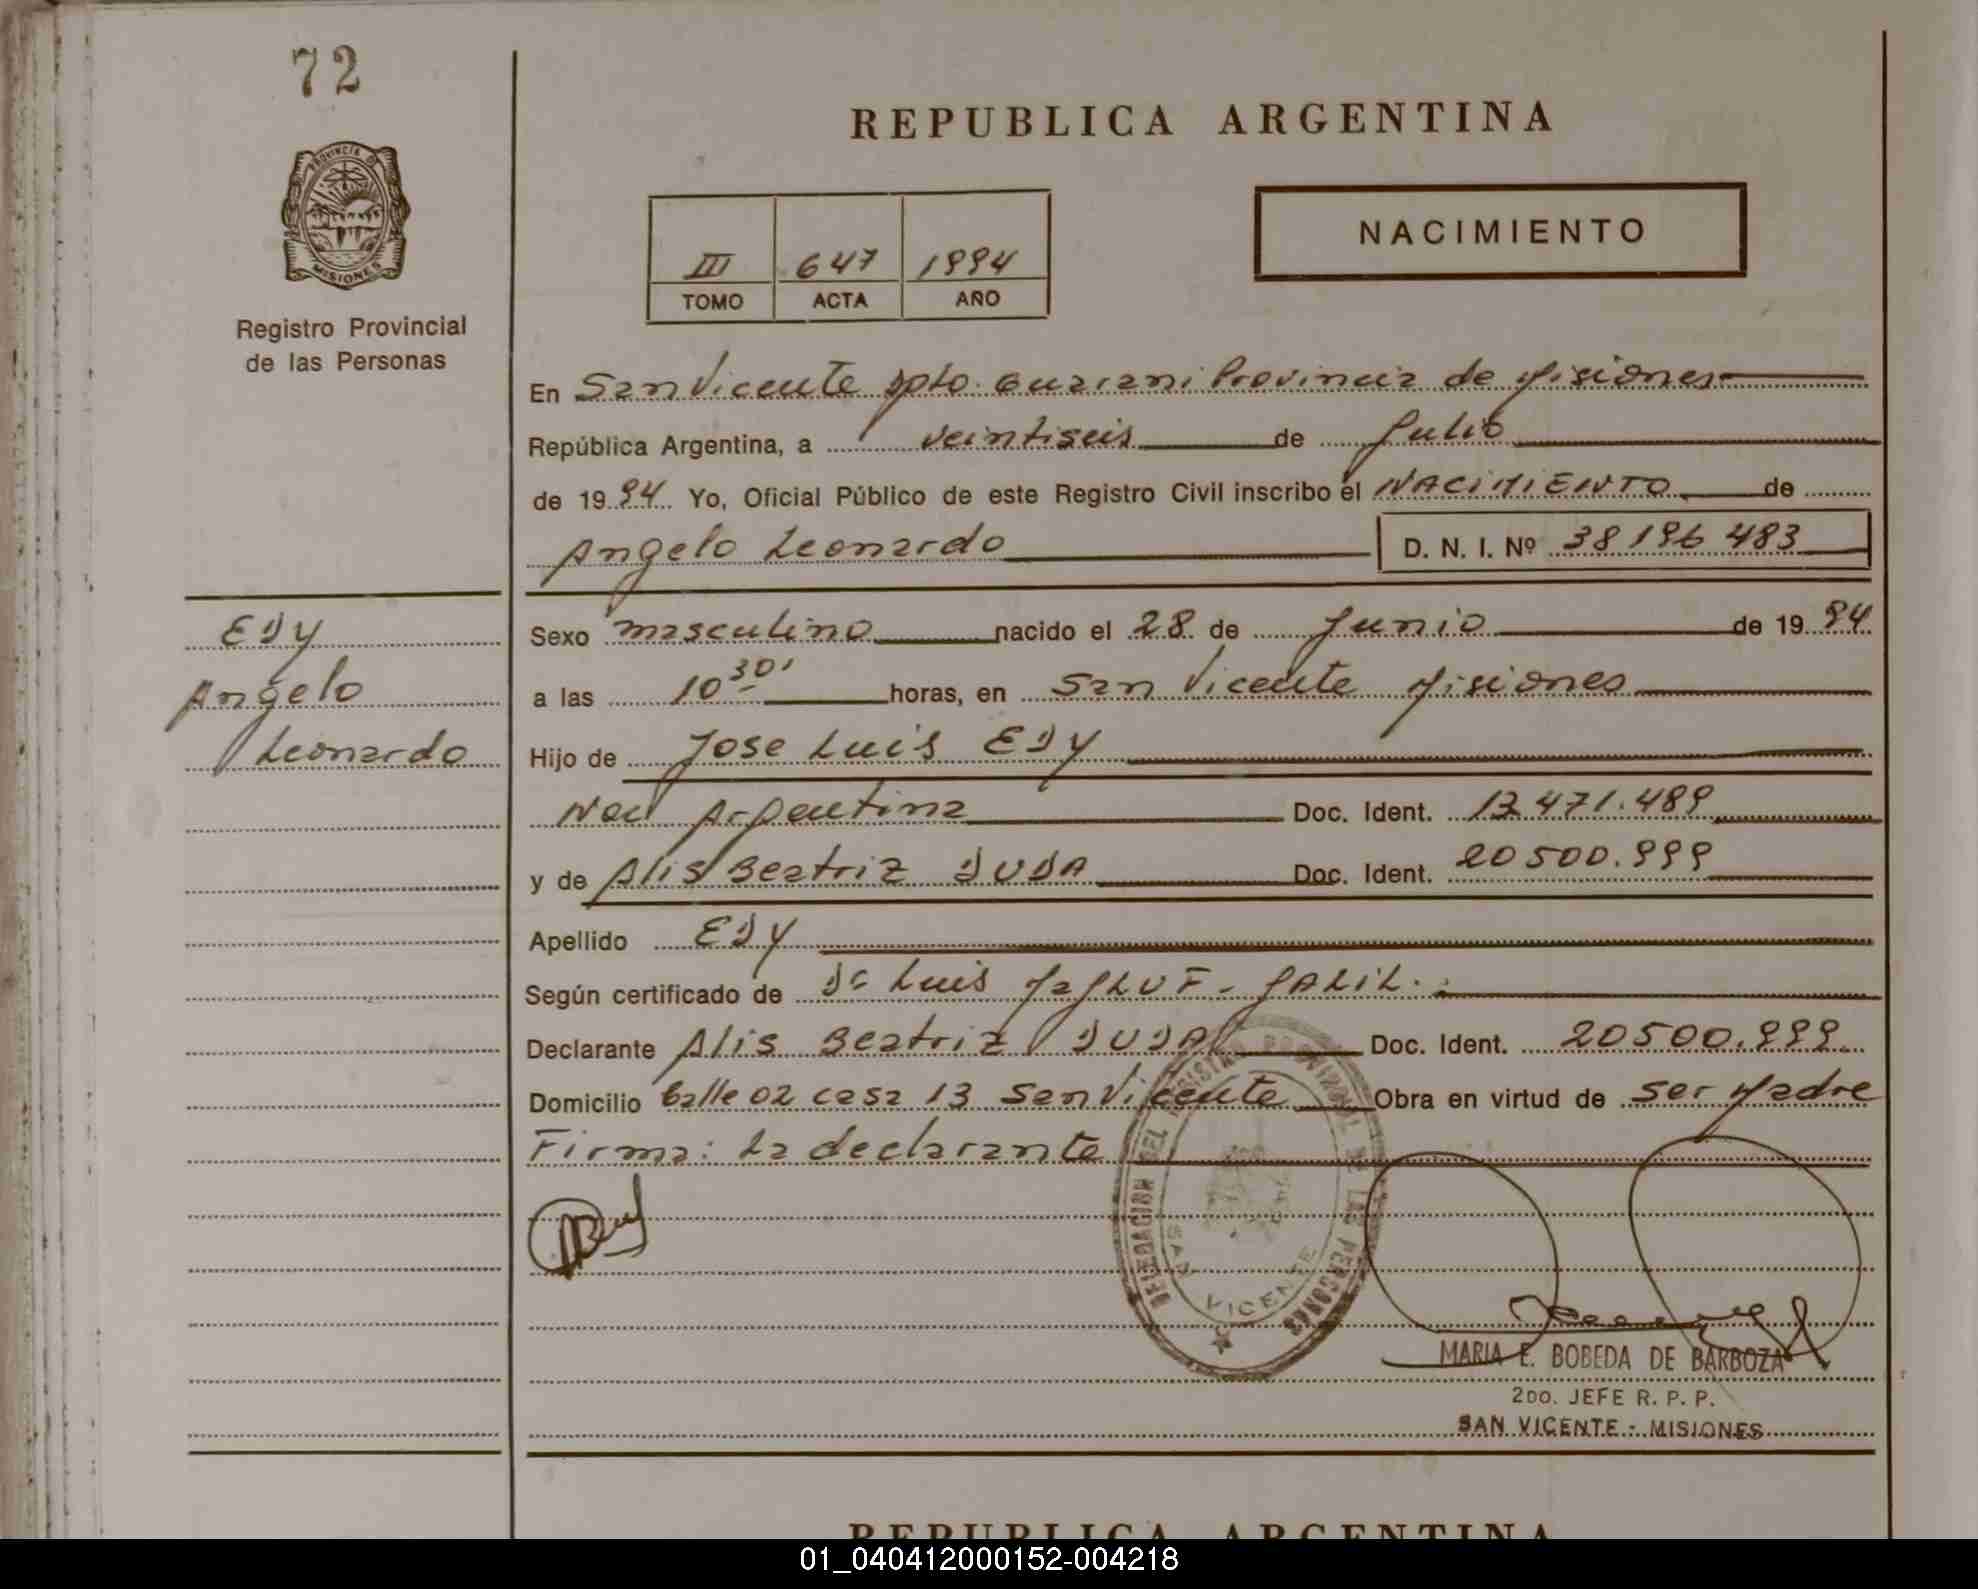 72
REPUBLICA ARGENTINA
PROVINCIA D
MISIONES
Registro Provincial
de las Personas
NACIMIENTO
III 647 1994
TOMO ACTA AÑO
En San Vicente Dpto. Guarani Provincia de Misiones
República Argentina, a veintiseis de Julio
de 1994 Yo, Oficial Público de este Registro Civil inscribo el NACIMIENTO de
Angelo Leonardo D. N. I. Nº 38 196 483
EDY
Angelo
Leonardo
Sexo masculino nacido el 28 de Junio de 1994
a las 10 30' horas, en San Vicente Misiones
Hijo de Jose Luis EDY
Nac Argentina Doc. Ident. 13.471.489
y de Alis Beatriz DUDA Doc. Ident. 20500.999
Apellido EDY
Según certificado de Dr Luis JALIL.
Declarante Alis Beatriz DUDA Doc. Ident. 20500.999
Domicilio Calle 02 casa 13 San Vicente Obra en virtud de ser Madre
Firma: La declarante
DELEGACION DEL REGISTRO PROVINCIAL DE LAS PERSONAS
SAN VICENTE
MARIA E. BOBEDA DE BARBOZA
2DO. JEFE R. P. P.
SAN VICENTE - MISIONES
REPUBLICA ARGENTINA
01_040412000152-004218